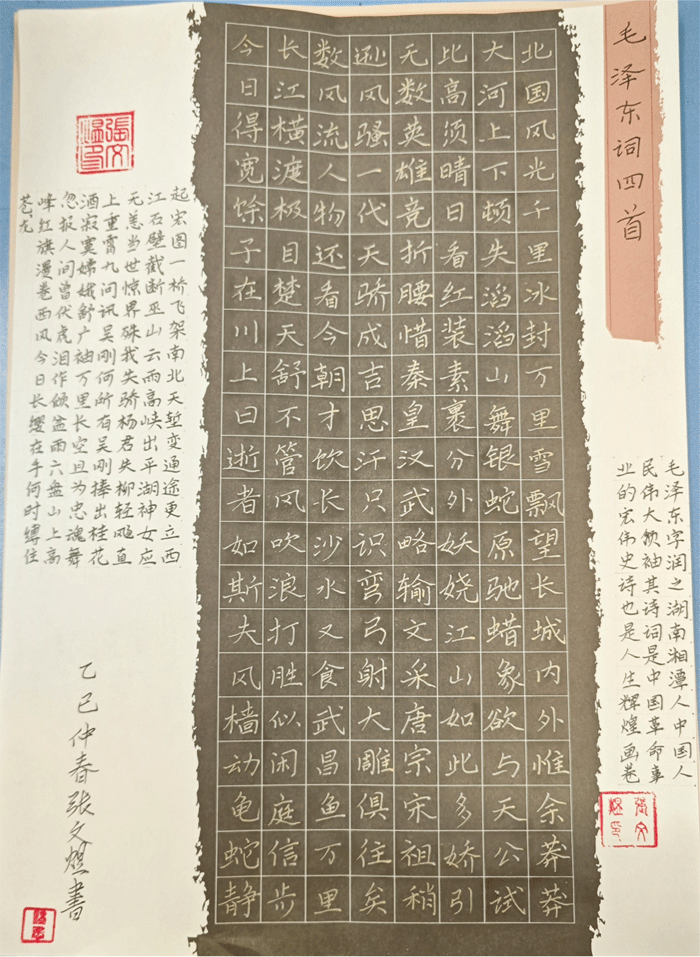 毛泽东词四首
毛泽东字润之湖南湘潭人中国人
民伟大领袖其诗词是中国革命事
业的宏伟史诗也是人生辉煌画卷
北国风光千里冰封万里雪飘望长城内外惟余莽莽
大河上下顿失滔滔山舞银蛇原驰蜡象欲与天公试
比高须晴日看红装素裹分外妖娆江山如此多娇引
无数英雄竞折腰惜秦皇汉武略输文采唐宗宋祖稍
逊风骚一代天骄成吉思汗只识弯弓射大雕俱往矣
数风流人物还看今朝才饮长沙水又食武昌鱼万里
长江横渡极目楚天舒不管风吹浪打胜似闲庭信步
今日得宽馀子在川上曰逝者如斯夫风樯动龟蛇静
起宏图一桥飞架南北天堑变通途更立西
江石壁截断巫山云雨高峡出平湖神女应
无恙当世惊界殊我失骄杨君失柳轻飏直
上重霄九问讯吴刚何所有吴刚捧出桂花
酒寂寞嫦娥舒广袖万里长空且为忠魂舞
忽报人间曾伏虎泪作倾盆雨六盘山上高
峰红旗漫卷西风今日长缨在手何时缚住
苍龙
乙巳仲春张文書